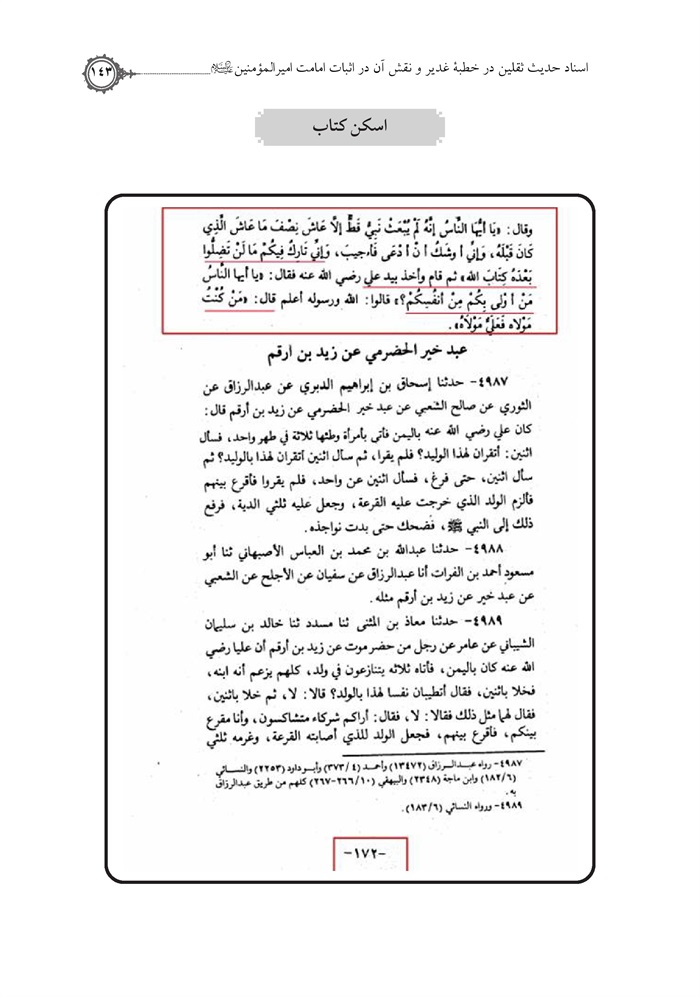 اسناد حدیث ثقلین در خطبهٔ غدیر و نقش آن در اثبات امامت امیرالمؤمنین
١٤٣
اسکن کتاب
وقال: «يَا أَيُّهَا النَّاسُ إِنَّهُ لَمْ يُبْعَثْ نَبِيٌّ قَطُّ إِلَّا عَاشَ نِصْفَ مَا عَاشَ الَّذِي
كَانَ قَبْلَهُ، وَإِنِّي أُوشِكُ أَنْ أُدْعَى فَأُجِيبَ، وَإِنِّي تَارِكٌ فِيكُمْ مَا لَنْ تَضِلُّوا
بَعْدَهُ كِتَابَ الله» ثم قام وأخذ بيد علي رضي الله عنه فقال: «يا أيها النَّاسُ
مَنْ أَوْلَى بِكُمْ مِنْ أَنفُسِكُمْ؟» قالوا: الله ورسوله أعلم قال: «مَنْ كُنْتُ
مَوْلَاه فَعَلِيٌّ مَوْلَاهُ».
عبد خير الحضرمي عن زيد بن أرقم
٤٩٨٧- حدثنا إسحاق بن إبراهيم الدبري عن عبدالرزاق عن
الثوري عن صالح الشعبي عن عبد خير الحضرمي عن زيد بن أرقم قال:
كان علي رضي الله عنه باليمن فأتى بامرأة وطئها ثلاثة في طهر واحد، فسأل
اثنين: أتقران لهذا الوليد؟ فلم يقرا، ثم سأل اثنين أتقران لهذا بالوليد؟ ثم
سأل اثنين، حتى فرغ، فسأل اثنين عن واحد، فلم يقروا فأقرع بينهم
فألزم الولد الذي خرجت عليه القرعة، وجعل عليه ثلثي الدية، فرفع
ذلك إلى النبي ﷺ، فضحك حتى بدت نواجذه.
٤٩٨٨- حدثنا عبدالله بن محمد بن العباس الأصبهاني ثنا أبو
مسعود أحمد بن الفرات أنا عبدالرزاق عن سفيان عن الأجلح عن الشعبي
عن عبد خير عن زيد بن أرقم مثله.
٤٩٨٩- حدثنا معاذ بن المثنى ثنا مسدد ثنا خالد بن سليمان
الشيباني عن عامر عن رجل من حضرموت عن زيد بن أرقم أن عليا رضي
الله عنه كان باليمن، فأتاه ثلاثه يتنازعون في ولد، كلهم يزعم أنه ابنه،
فخلا باثنين، فقال أتطيبان نفسا لهذا بالولد؟ قالا: لا، ثم خلا باثنين،
فقال لهما مثل ذلك فقالا: لا، فقال: أراكم شركاء متشاكسون، وأنا مقرع
بينكم، فأقرع بينهم، فجعل الولد للذي أصابته القرعة، وغرمه ثلثي
٤٩٨٧- رواه عبدالرزاق (١٣٤٧٢) وأحمد (٣٧٣/٤) وأبو داود (٢٢٥٣) والنسائي
(١٨٢/٦) وابن ماجة (٢٣٤٨) والبيهقي (٢٦٦/١٠-٢٦٧) كلهم من طريق عبدالرزاق
به.
٤٩٨٩- ورواه النسائي (١٨٣/٦).
-١٧٢-